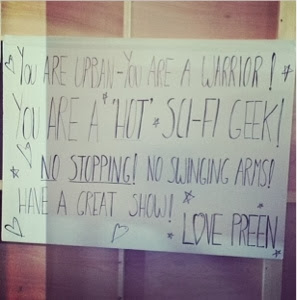 YOU ARE URBAN-YOU ARE A WARRIOR!
YOU ARE A "HOT" SCI-FI GEEK!
NO STOPPING! NO SWINGING ARMS!
HAVE A GREAT SHOW!
LOVE PREEN